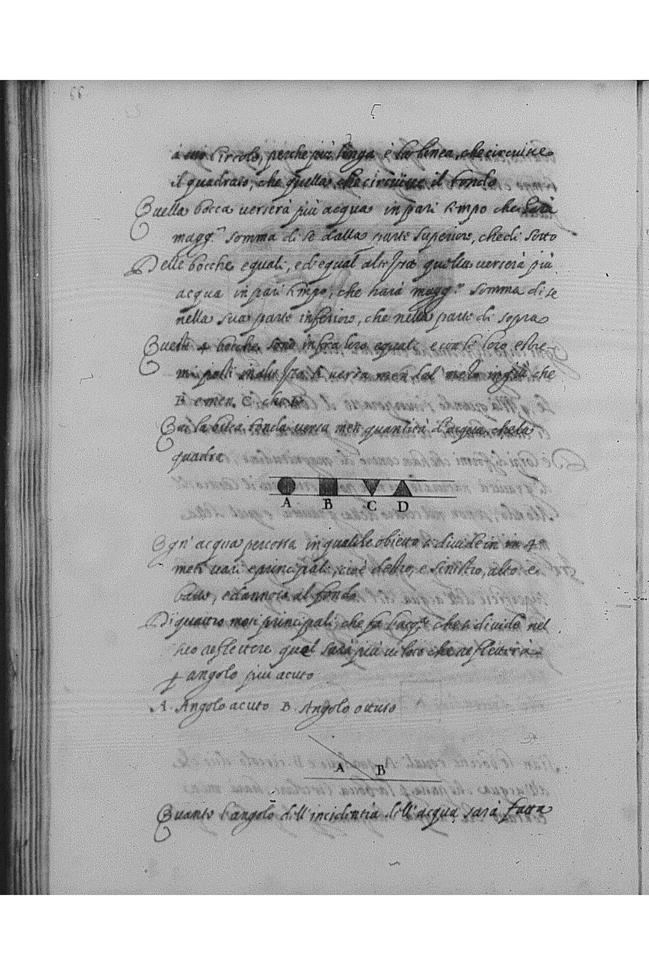 à un Circolo, perche più lunga è la linea, che circuisce
il quadrato, che quella che circuisce il tondo
Quella bocca verserà più acqua in pari tempo che harà
magg.r somma di se dalla parte superiore, che di sotto
Delle bocche equali, e d'equal altezza quella verserà più
acqua in pari tempo, che harà magg.r somma di se
nella sua parte inferiore, che nella parte di sopra
Queste 4 bocche sono infra loro equali e con le loro estre-
B e men C che
Qui la bocca tonda versa men quantità d'acqua, che la
quadra
A B C D
Ogn' acqua percossa in qualche obietto si divide in 4
moti vari e principali, cioè destro, e sinistro, alto e
basso, ed'ancora al fondo
Di quattro moti principali, che fa l'acq.a che si divide nel
suo reflettere qual sarà più veloce che refletterà
angolo più acuto
A. Angolo acuto B. Angolo ottuso
A B
Quanto l'angolo dell'incidentia dell'acqua sarà fatta